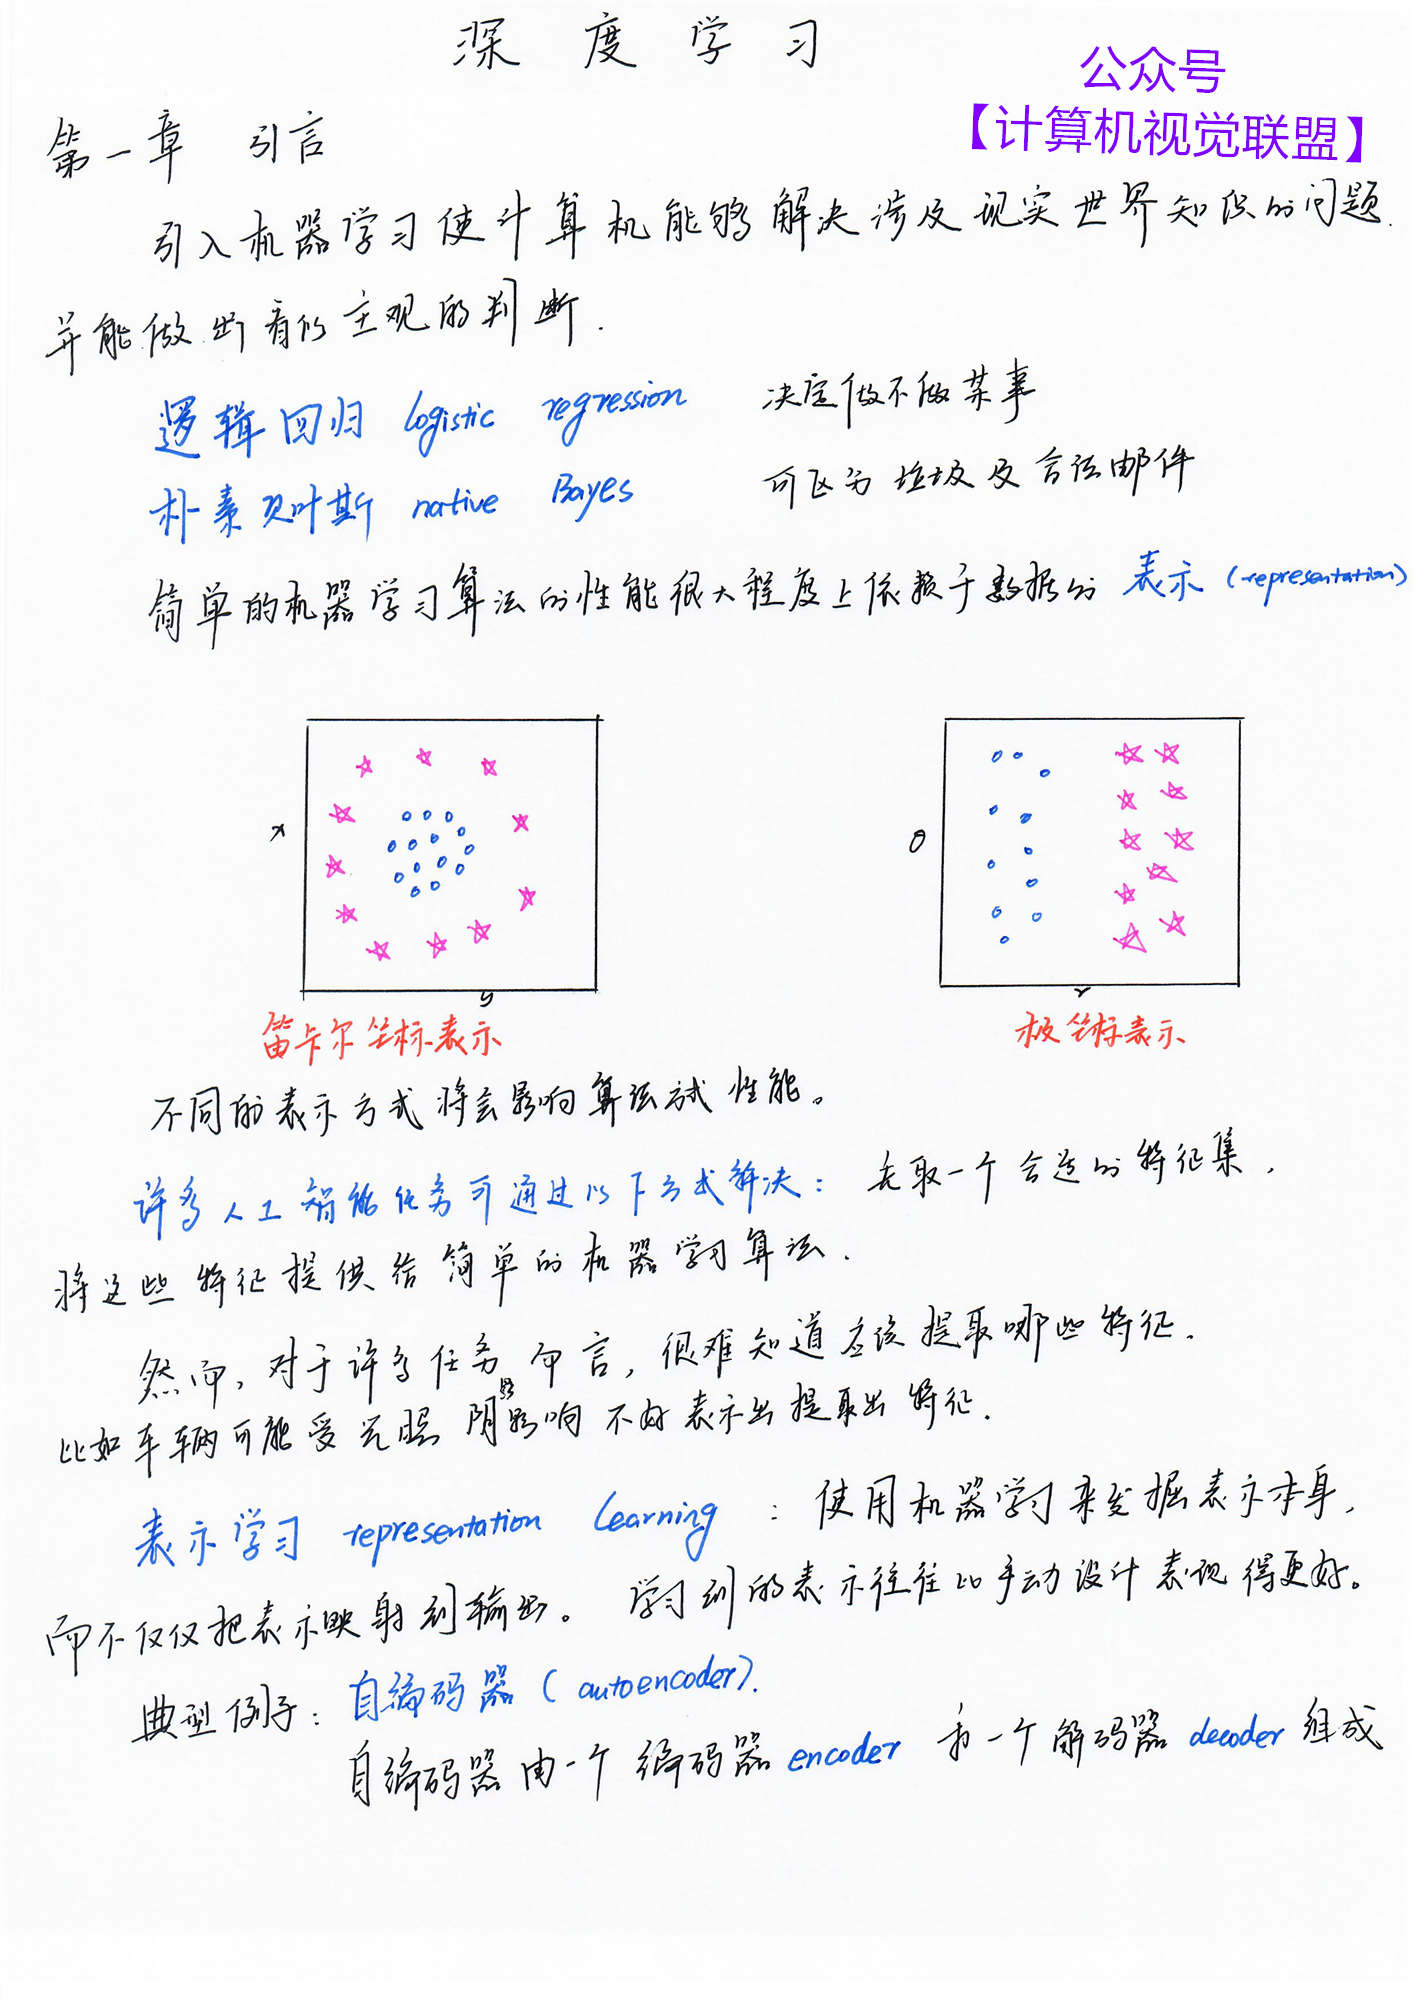 深度学习
公众号
【计算机视觉联盟】
第一章 引言
引入机器学习使计算机能够解决涉及现实世界知识的问题.
并能做出看似主观的判断.
逻辑回归 logistic regression 决定做不做某事
朴素贝叶斯 native Bayes 可区分垃圾及合法邮件
简单的机器学习算法的性能很大程度上依赖于数据的 表示 (representation)
x
y
θ
r
笛卡尔坐标表示
极坐标表示
不同的表示方式将会影响算法 性能。
许多人工智能任务可通过以下方式解决: 先取一个合适的特征集,
将这些特征提供给简单的机器学习算法.
然而, 对于许多任务而言, 很难知道应该提取哪些特征.
比如车辆可能受光照 阴影影响 不好表示出提取出特征.
表示学习 representation learning : 使用机器学习来发掘表示本身,
而不仅仅把表示映射到输出。 学习到的表示往往比手动设计表现得更好。
典型例子: 自编码器 (autoencoder).
自编码器由一个编码器 encoder 和一个解码器 decoder 组成